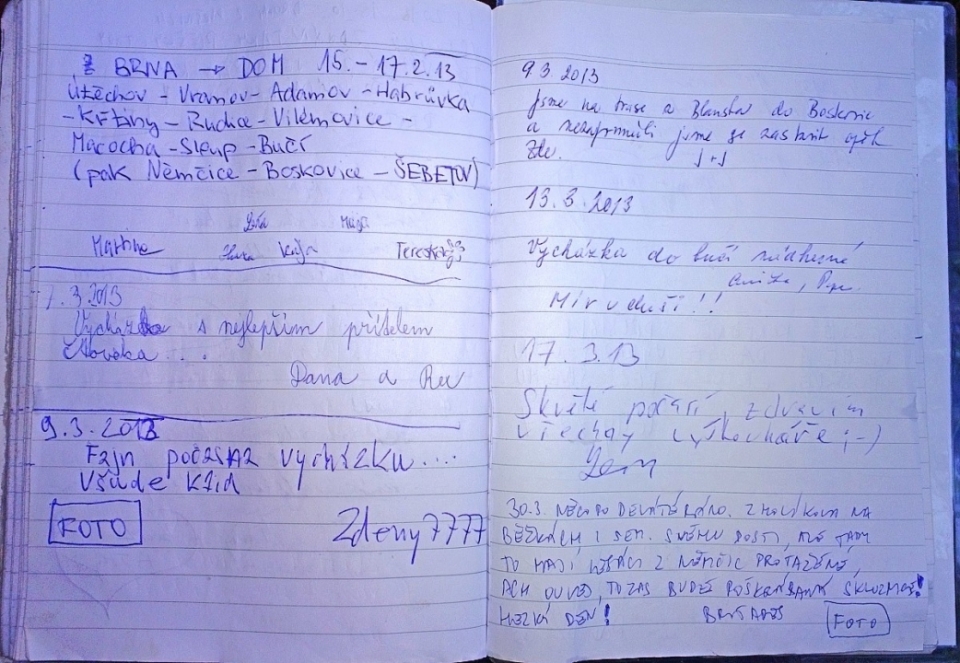 Z BRNA → DOM 15. - 17.2.13
Útěchov - Vranov - Adamov - Habrůvka
- Křtiny - Rudice - Vilémovice -
Macocha - Sloup - Bučí
(pak Němčice - Boskovice - ŠEBETOV)
Martina Káťa Terezka
7.3.2013
Vycházka s nejlepším přítelem
člověka ...
Dana a Rex
9.3.2013
Fajn počas na vycházku....
všude klid
FOTO Zdeny7777
9.3.2013
Jsme na trase z Blanska do Boskovic
a nezapomněli jsme se zastavit opět
zde. J+J
13.3.2013
Vycházka do bučí nádherné
Mír v duši!!
17.3.13
Skvělé počasí, zdravím
všechny
30.3. NĚCO PO DEVÁTÉ RÁNO. Z HOLÍKOVA NA
BĚŽKÁCH I SEM. SNĚHU DOSTI, ALE TADY
TO MAJÍ Z NĚMČIC PROTAŽENÉ,
ACH OUVEJ, TO ZAS BUDE !
HEZKÝ DEN!
FOTO